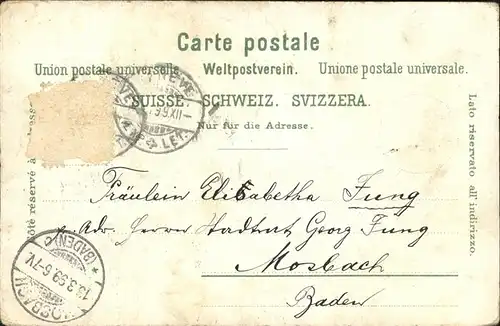 Carte postale
Union postale universelle. Weltpostverein. Unione postale universale.
SUISSE. SCHWEIZ. SVIZZERA.
Nur für die Adresse.
Côté réservé à
Lato riservato all'indirizzo.
Fräulein Elisabetha Jung
p. Adr. Herrn Stadtrat Georg Jung
Mosbach
Baden
MOSBACH
(BADEN)
13.3.99.6-7N.